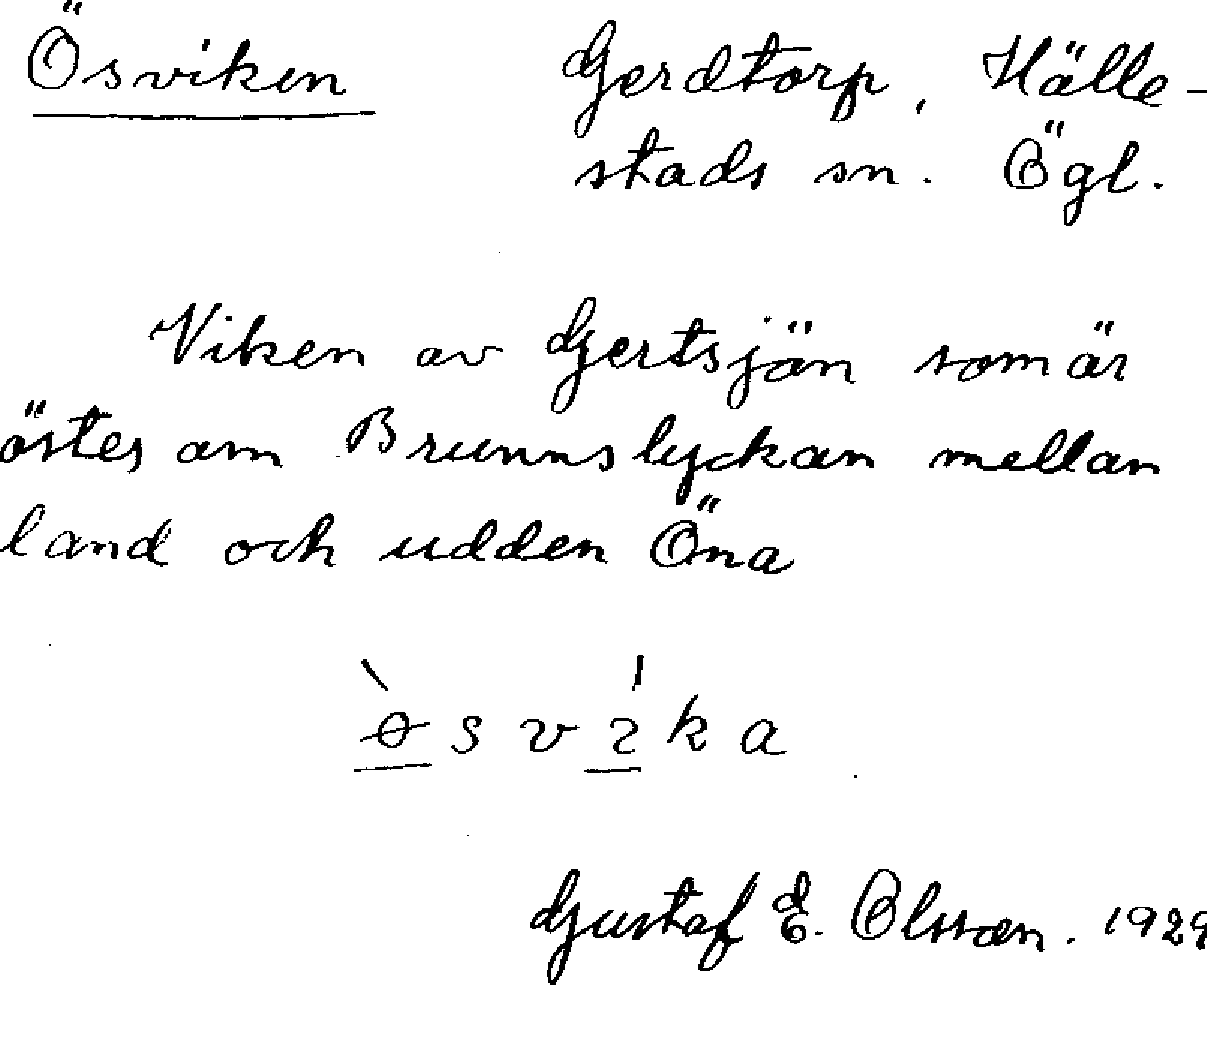 Ösviken Gerdtorp, Hälle-
stads sn. Ögl.
Viken av Gertsjön som är
öster om Brunnslyckan mellan
land och udden Öna
ɵ̀svɩ́ka
Gustaf E. Olsson. 1929